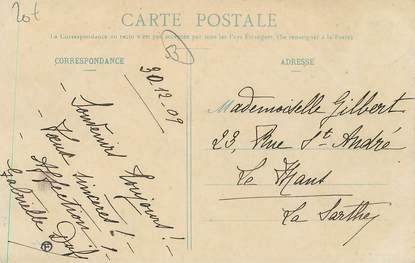 20f
CARTE POSTALE
La Correspondance au recto n'est pas acceptée par tous les Pays Étrangers. (Se renseigner à la Poste).
CORRESPONDANCE
ADRESSE
30-12-09
Souvenirs Toujours!-
Vœux sincères!-
Affection!-
Gabrielle
Mademoiselle Gilbert
23, Rue St-André
Le Mans
La Sarthe